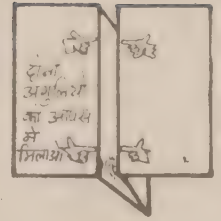 दोनों
अंगुलियां
को आपस
में
मिलाओ